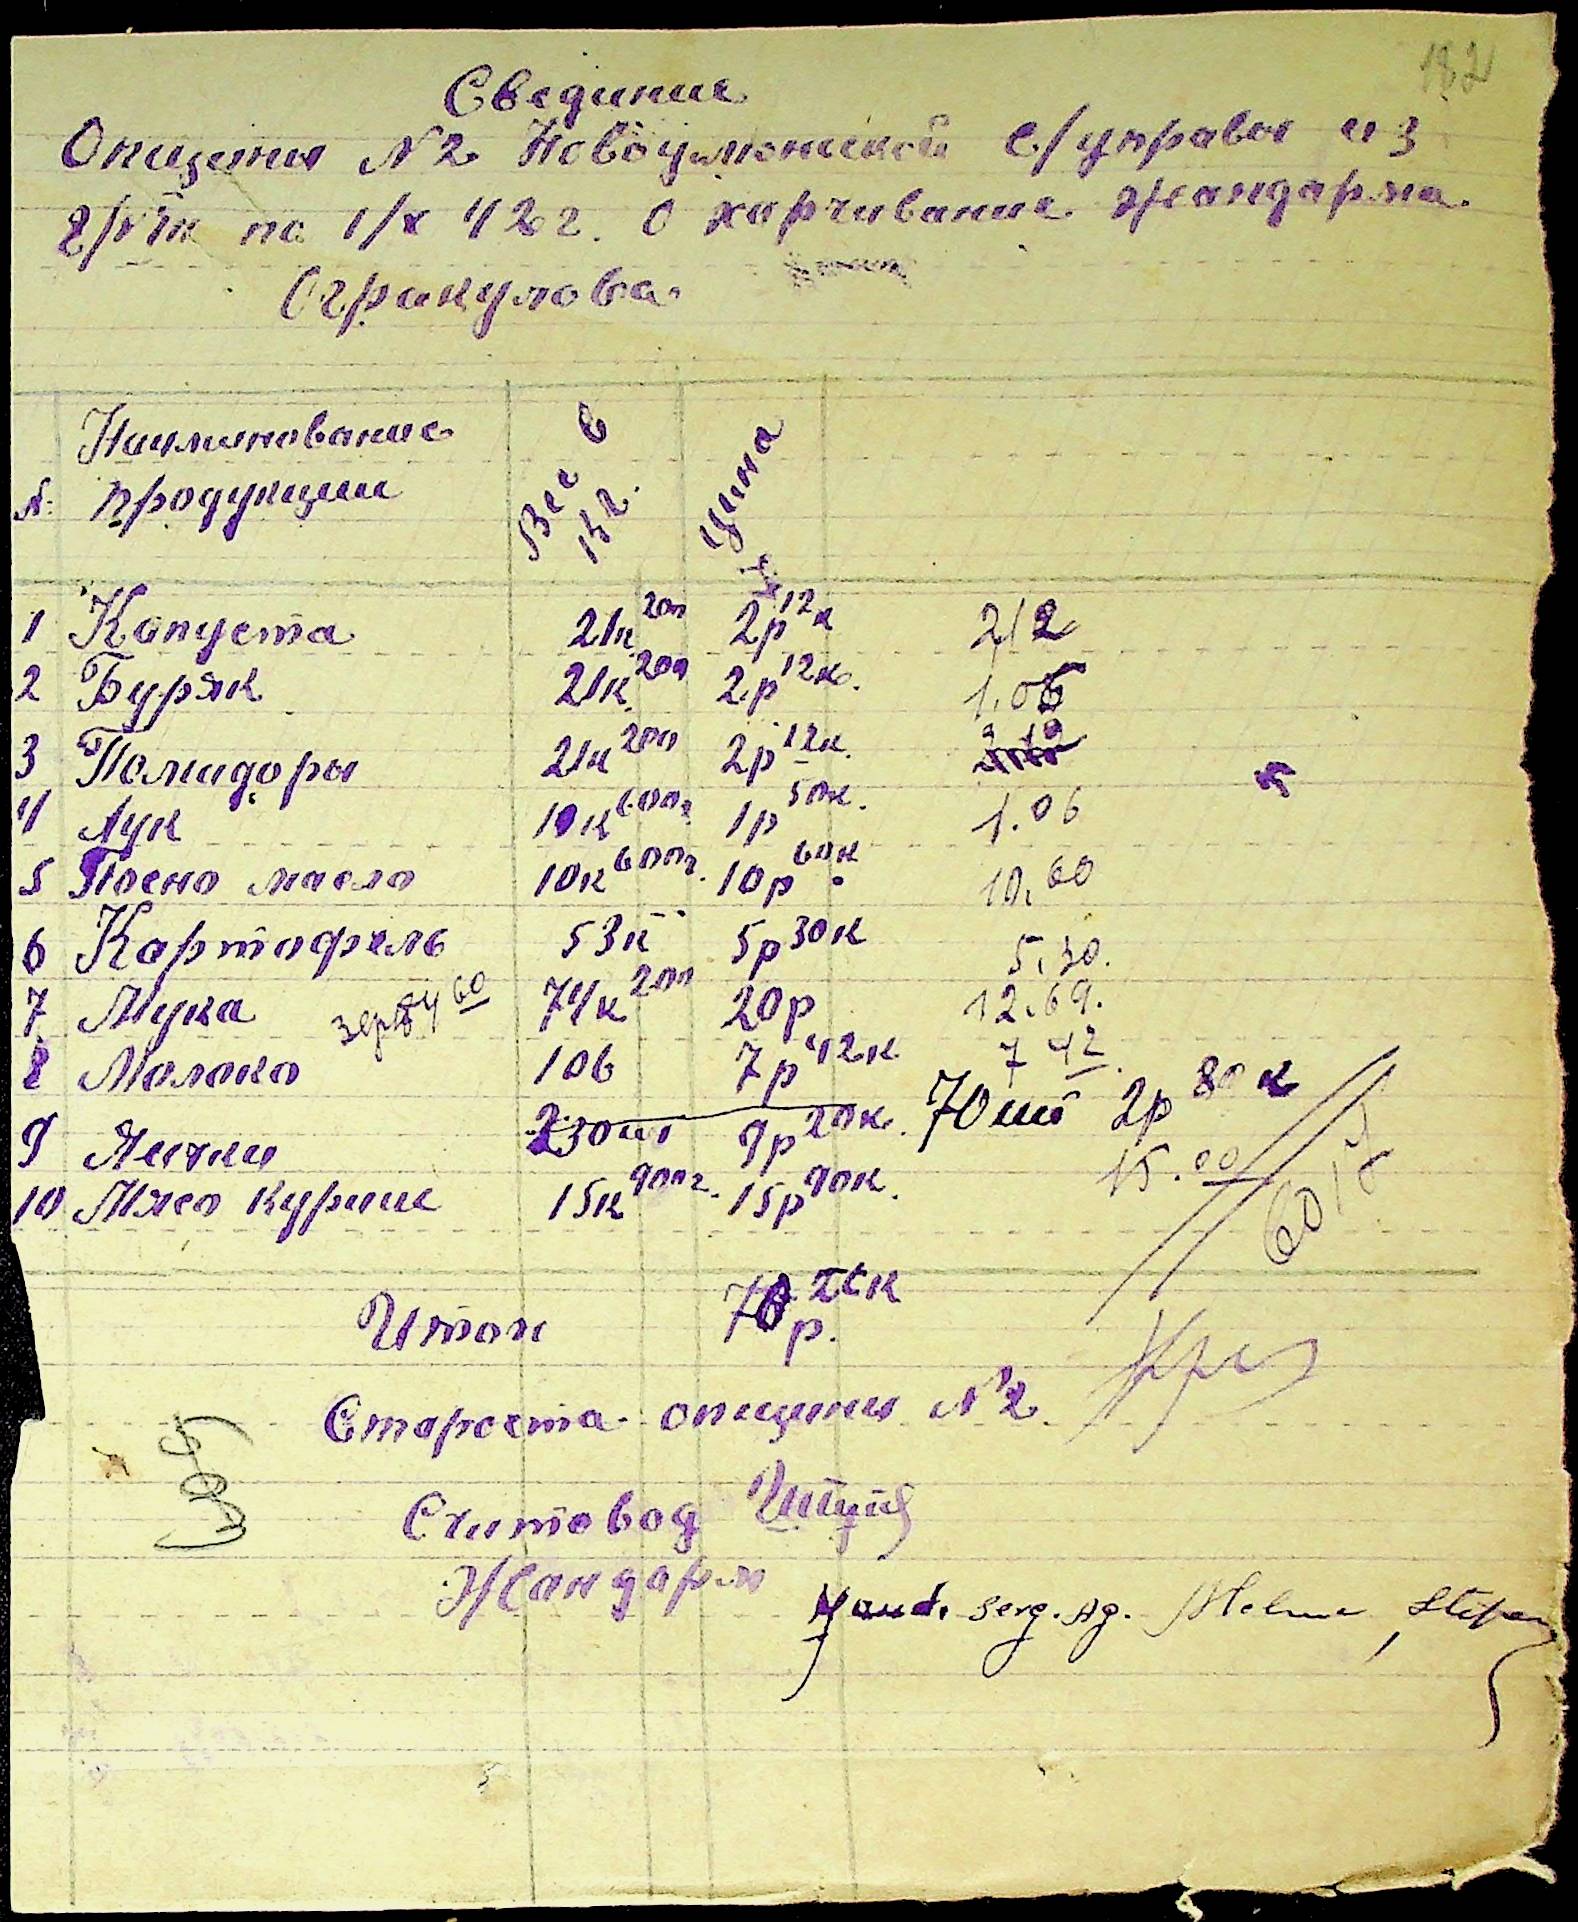 182
Свединие
Опщены N 2 Новоумонскои с/управы из
по 1/X 42 г. О харчивание жандарма
Стракулова.
N: Наиминование продукции Вес в кг. Цина
1 Копуста 21к 200 2р 12к 2,12
2 Буряк 21к 200 2р 12к. 1.06
3 Помидоры 21к 200 2р 12к. 2.12
4 Лук 10к 600г 1р 50к. 1.06
5 Посно масло 10к 600г. 10р 60к 10.60
6 Картофель 53к 5р 30к 5.30.
7 Мука 74к 200 20р 12.69.
8 Молоко 106 7р 42к 7 42.
9 Яички 230шт 9р 20к. 70шт 2р 80к
10 Мясо курине 15к 900г. 15р 90к. 15.00
Итого 70р.
Староста опщины N 2
Считовод
Жандарм Jand. Serg. Ag. Stefan